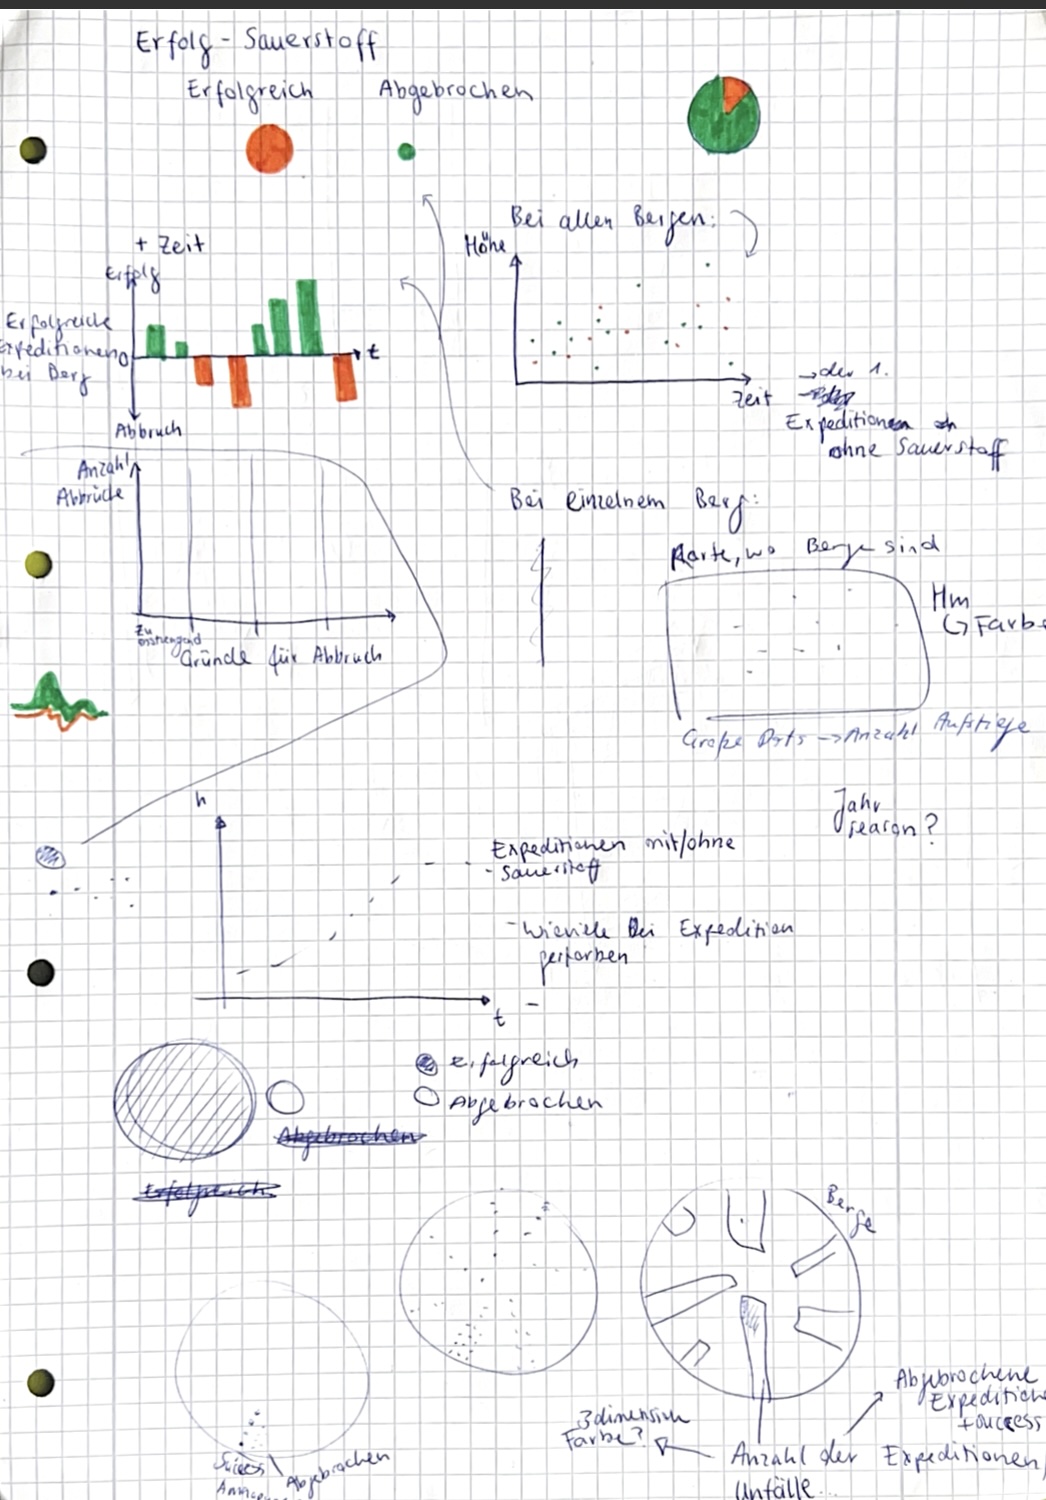 Erfolg - Sauerstoff
Erfolgreich Abgebrochen
Bei allen Bergen:
+ Zeit
Erfolg
Höhe
Erfolgreiche
Expeditionen 0
bei Berg
t
Abbruch
Zeit
→ der 1.
Expeditionen
ohne Sauerstoff
Anzahl
Abbrüche
Bei einzelnem Berg:
Karte, wo Berge sind
Hm
↳ Farbe
Zu
anstrengend
Gründe für Abbruch
Große Dots → Anzahl Aufstiege
Jahr
season?
h
Expeditionen mit/ohne
- Sauerstoff
- Wieviele bei Expedition
gestorben
t
-
Erfolgreich
Abgebrochen
Abgebrochen
Erfolgreich
Berge
Abgebrochene
Expeditionen
+ success
3dimension
Farbe?
Anzahl der Expeditionen,
Unfälle...
Success
Abgebrochen